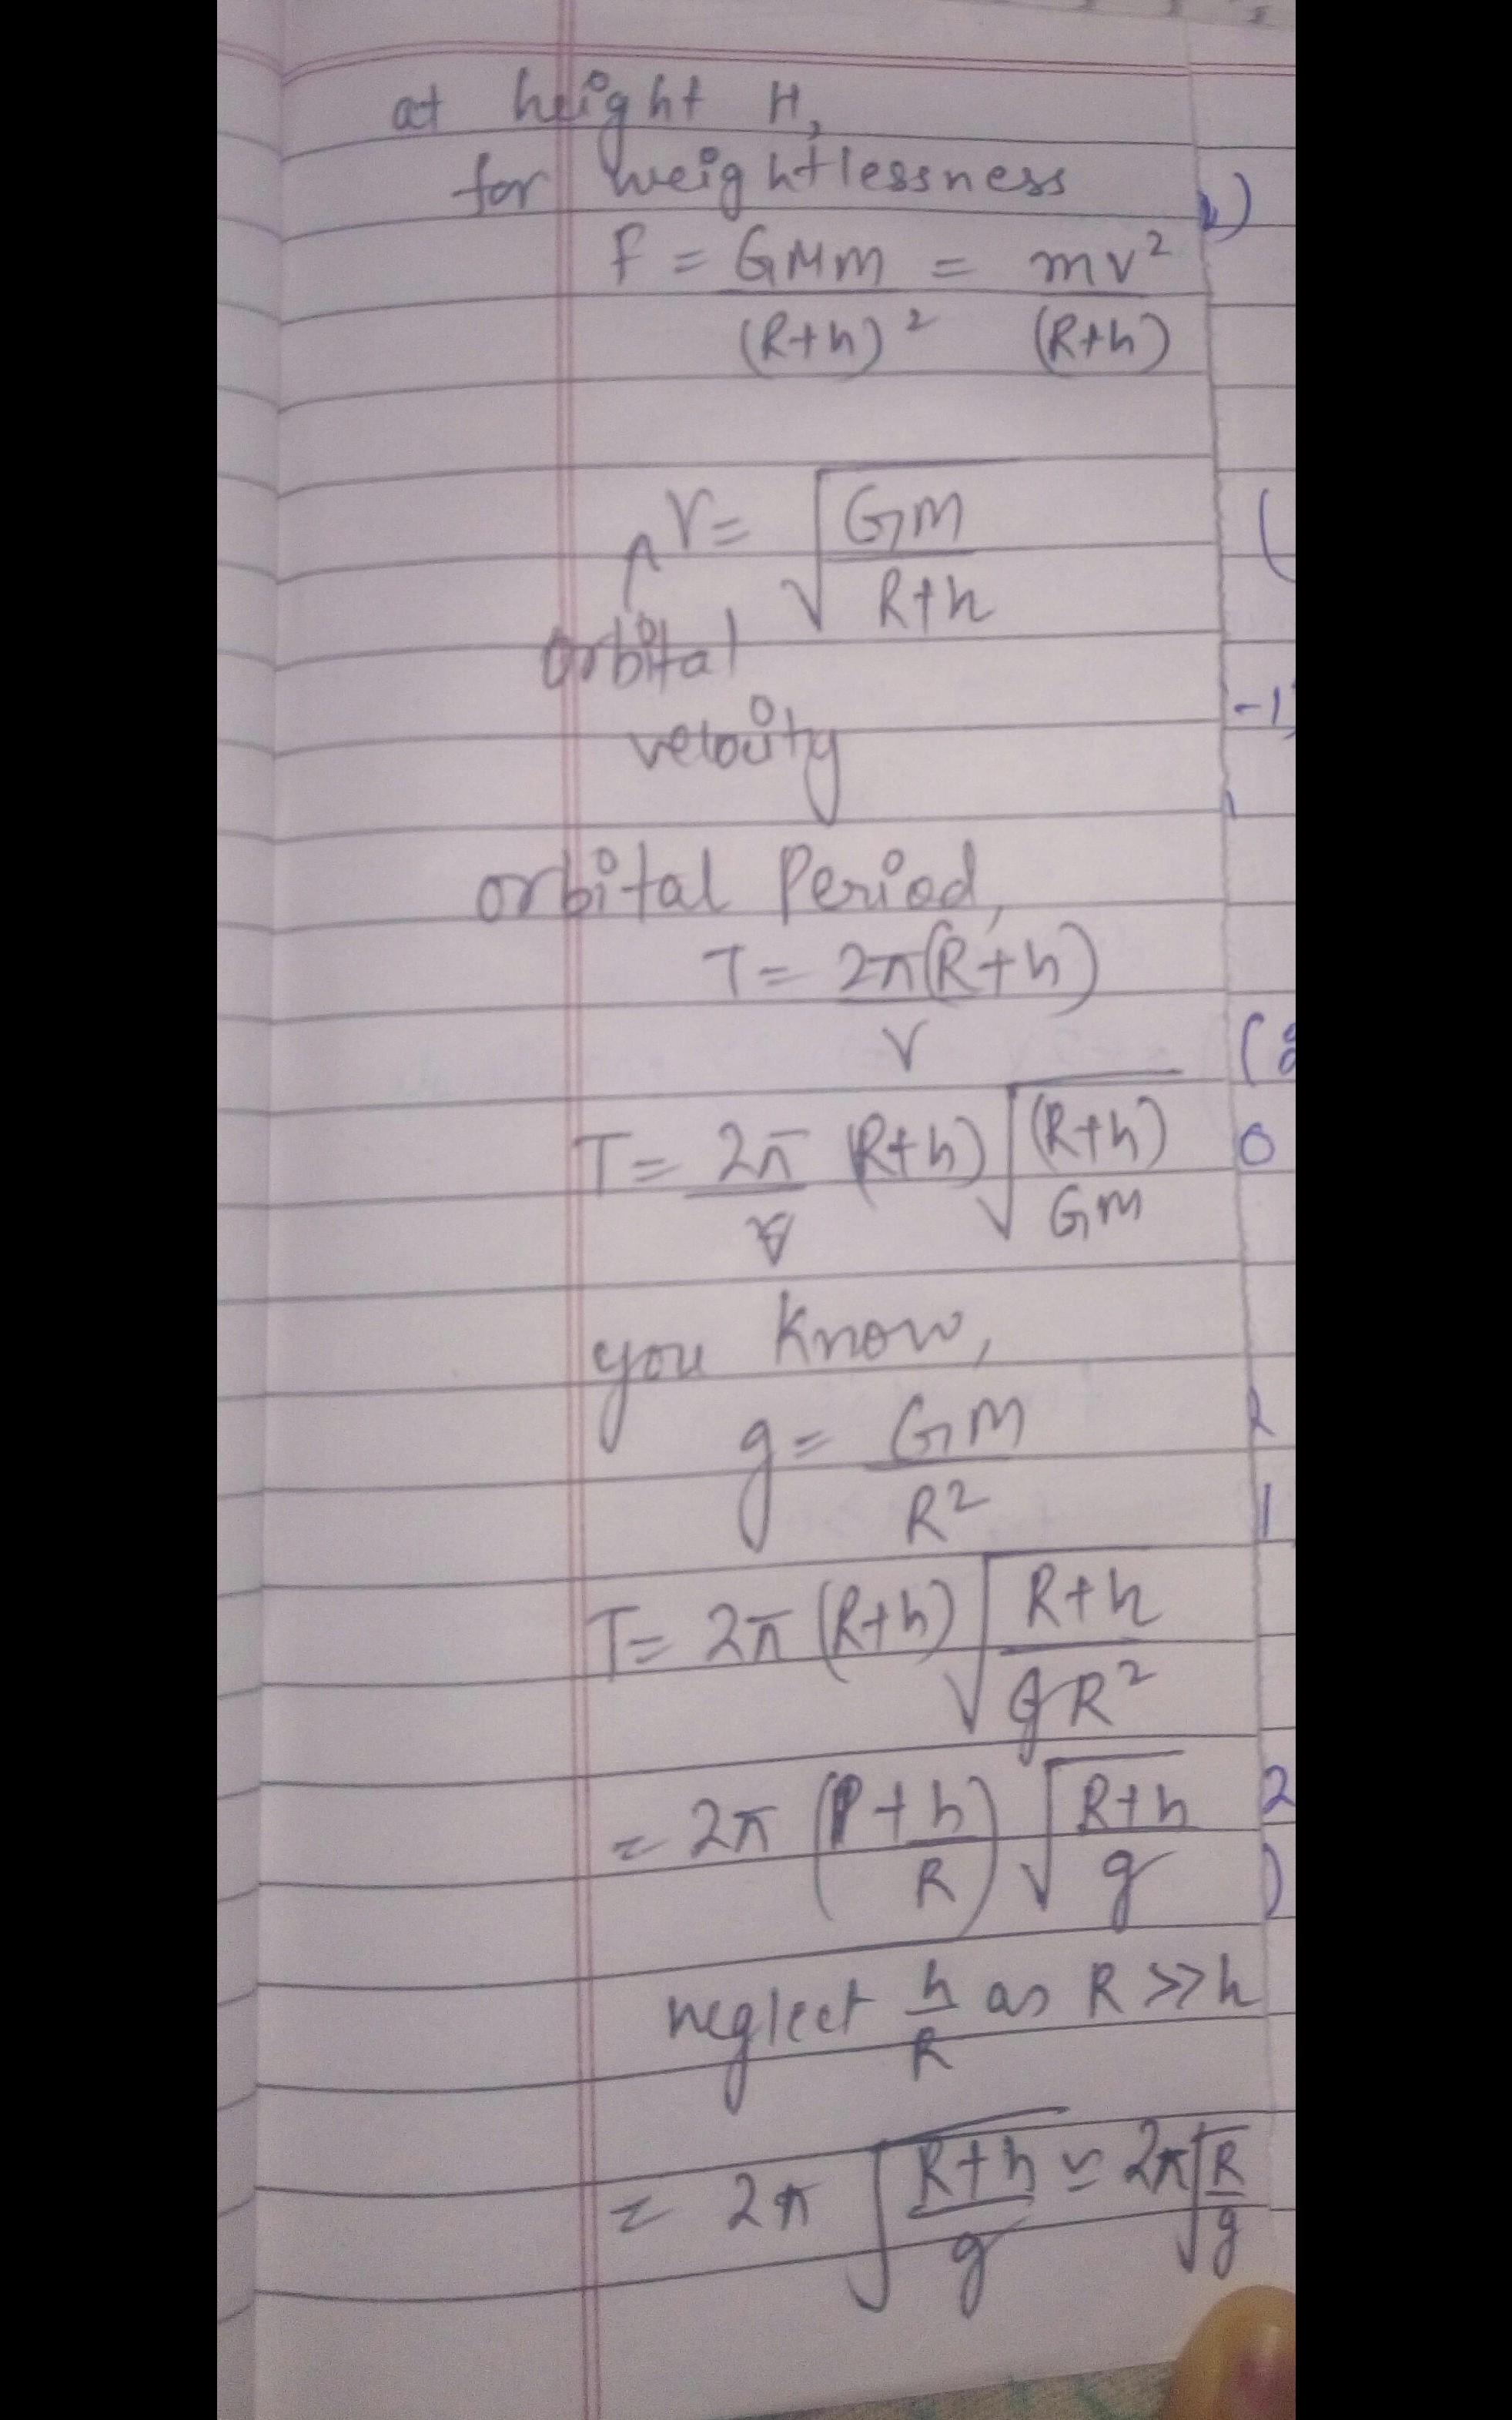 at height H,
for weightlessness
F = GMm/(R+h)² = mv²/(R+h)
V = √(GM/(R+h))
orbital
velocity
orbital Period,
T = 2π(R+h)/V
T = 2π (R+h) √((R+h)/GM)
you know,
g = GM/R²
T = 2π (R+h) √(R+h/gR²)
= 2π (R+h/R) √(R+h/g)
neglect h/R as R >> h
= 2π √(R+h/g) ≈ 2π√(R/g)